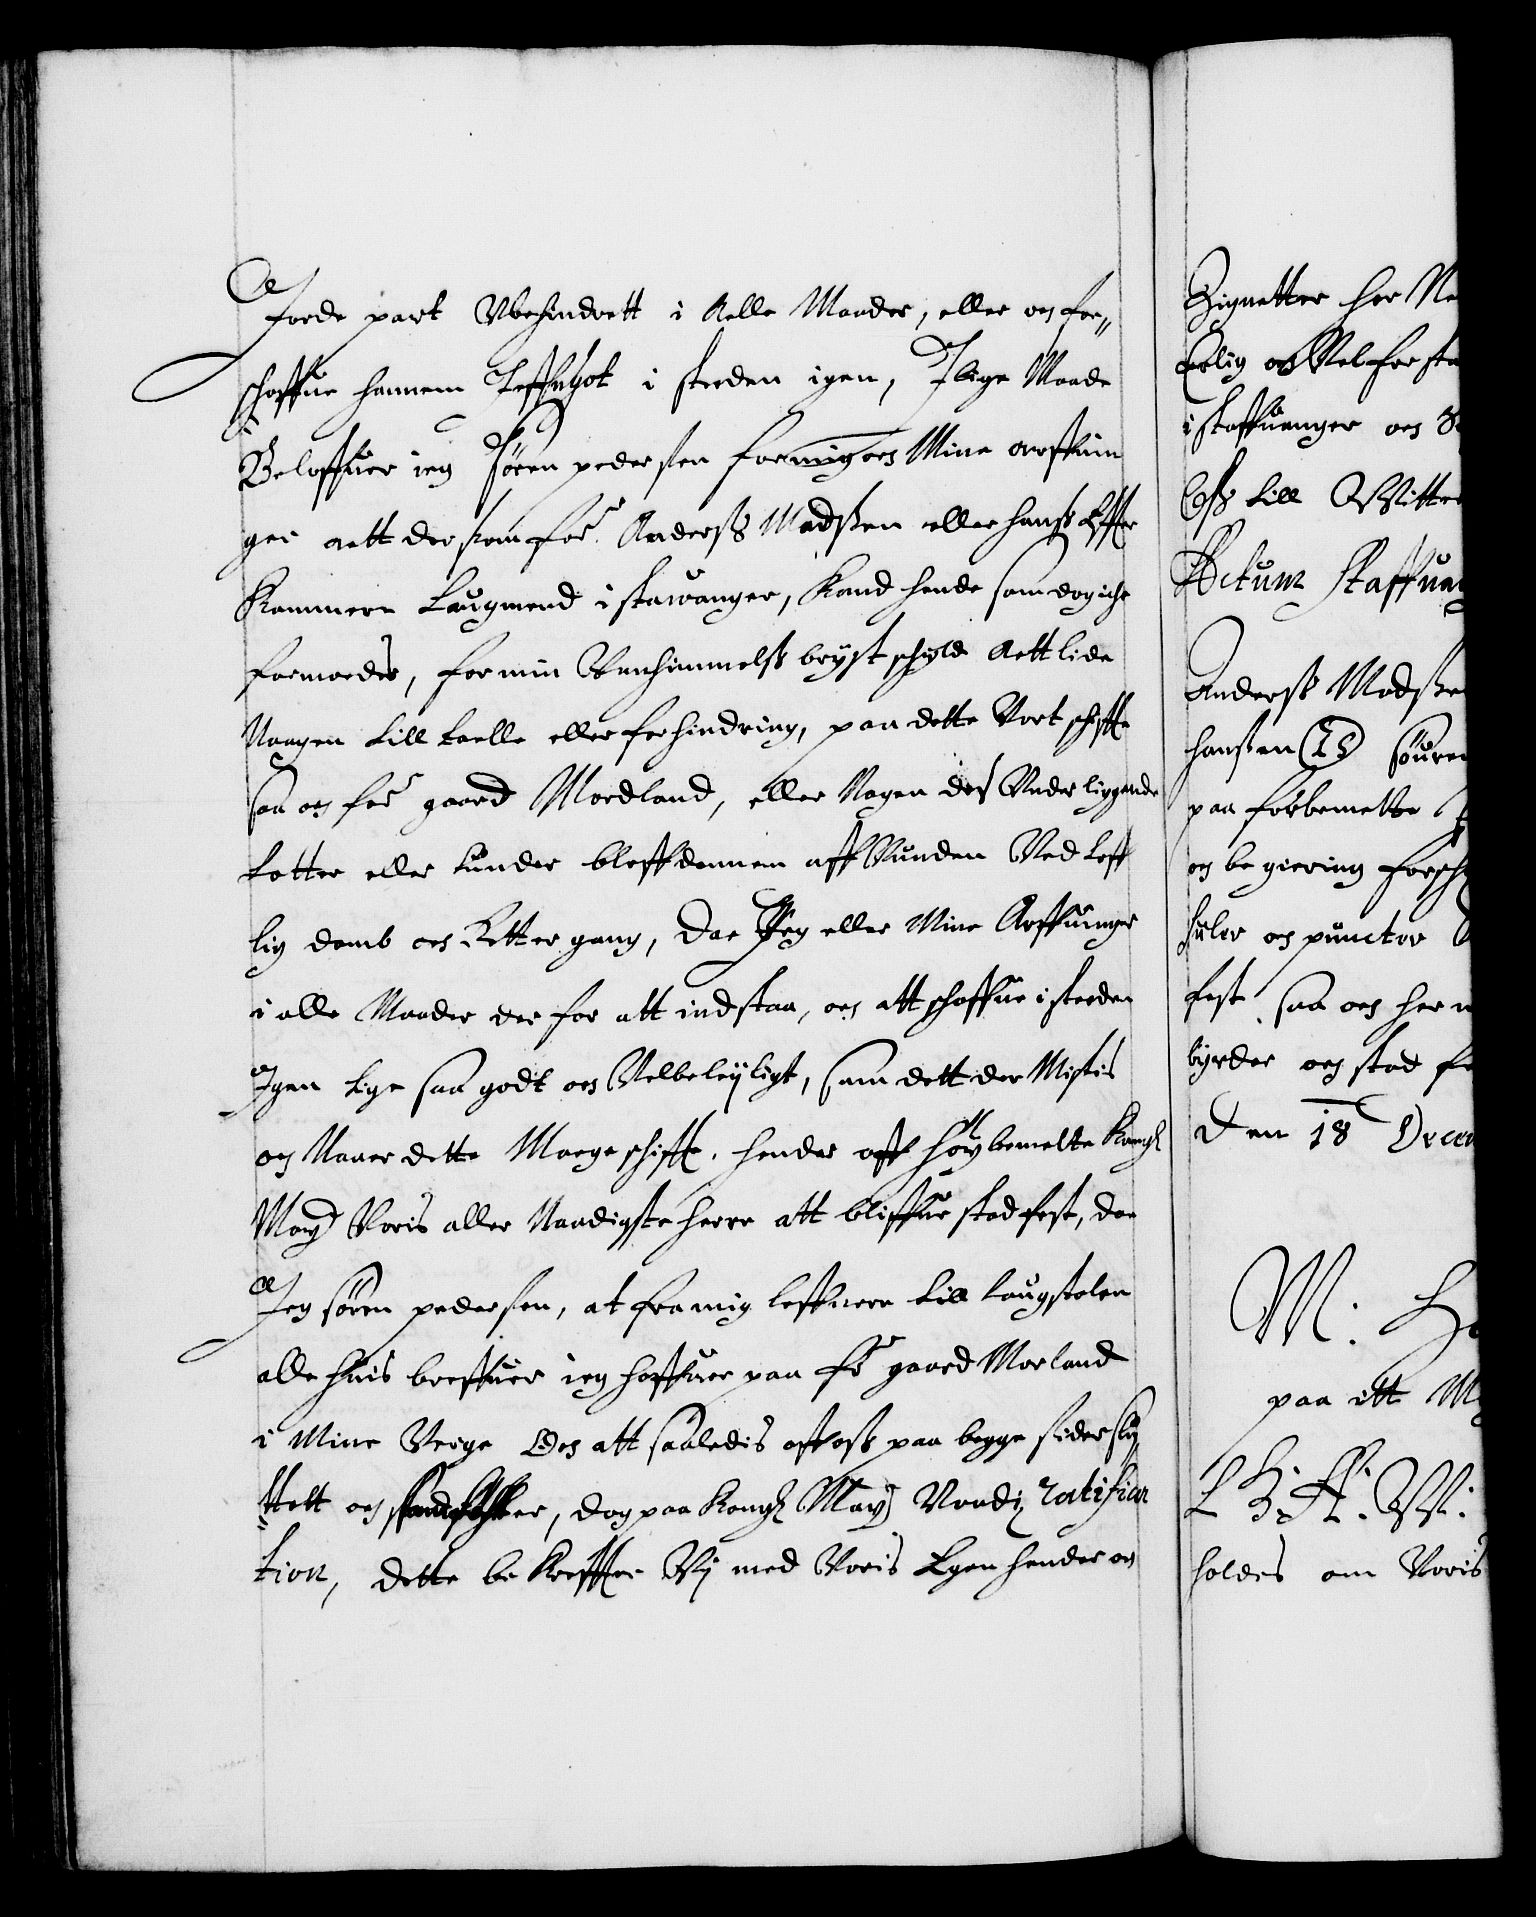 Jorde part Vbehindrett i Aelle Maader, eller og for„
schaffue hannem Jeffngot i steeden igen, J lige Maade
Beloffuer ieg Sören pedersen for mig oc Mine arffuin
ger att dersom for.ne Anderss Madssen eller hanss Effter
Kommere Laugmend i stawanger, Kand hende som dog iche
formoedes, for min Vanhimmelss bryst schyld Aett lide
Naagen till taelle eller forhindring, paa dette Vort schiffte
saa og for.ne gaard Mordland, eller Nogen des Vnder liggende
lotter eller lunder bleff dennem aff Vunden Ved Loff
lig domb oc Rettergang, Daa Jeg eller Mine Arffuinger
i alle Maader der for att indstaa, og att schaffue i steeden
Jgen lige saa godt oc Velbeleyligt, som dett der Mistis
og Naaer dette Mageschiffte, hender aff höybemelte Kongl
May Voris aller Naadigste herre att bliffue stadfest, daa
Jeg sören pedersen, at fra mig leffuere till laugstolen
alle huis breffuer ieg haffuer paa for.ne gaard Morland
i Mine Verge Och att saaledis aff oss paa begge sider slu
ttett og , dog paa Kongl May Naadi ratifica
tion, dette be Kreffter Vi med Voris Egen hender og
Zignetter her Ne
Erlig og Velforsta
i staffuanger oc S
Oss till Witter
Actum Staffuan
Anderss Madsse
hanssen (LS) Söuren
paa forbemelte
og begiering forsch
suler og puncter
fest, saa og her m
byrder og stad fe
Den 18 Decem
M: H
paa ett M
holdes om Voris